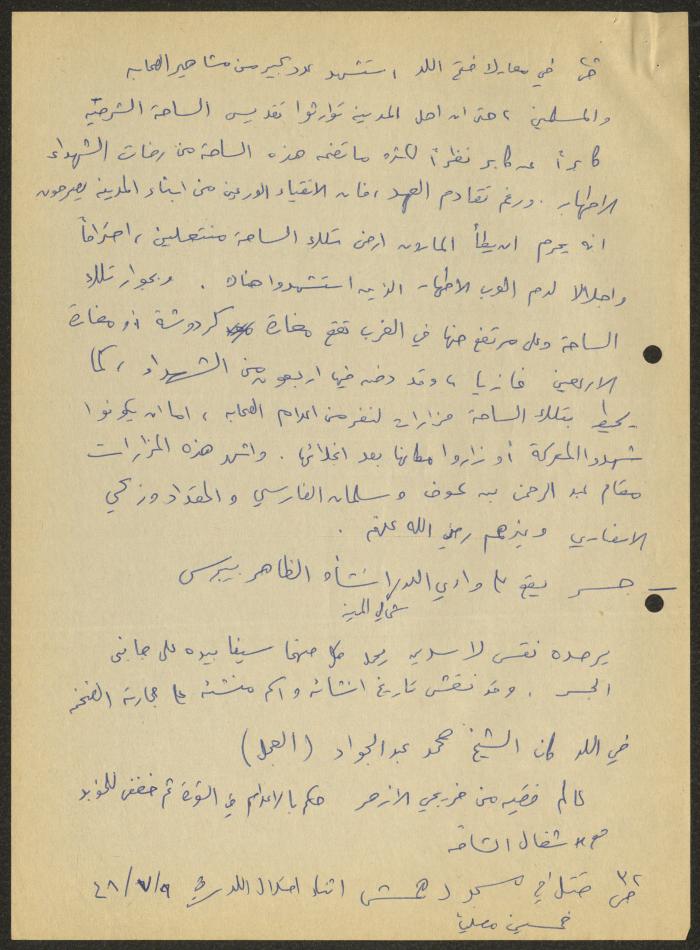 في معارك فتح اللد استشهد عدد كبير من مشاهير الصحابه
والمسلمين ، حتى ان اهل المدينة توارثوا تقديس الساحة الشرقيه
كابراً عن كابر نظراً لكثرة ما تضمه هذه الساحة من رفات الشهداء
الاطهار . ورغم تقادم العهد ، فان الاتقياء الورعين من ابناء المدينة يصرحون
انه يحرم ان يطأ المارون ارض تلك الساحة منتعلين ، احتراماً
واجلالا لدم العرب الاطهار الذين استشهدوا هناك . وبجوار تلك
الساحة وعلى مرتفع منها في الغرب تقع مغارة كردوشة أو مغارة
الاربعين غازيا ، وقد دفن فيها اربعون من الشهداء ، كما
يحيط بتلك الساحة مزارات لنفر من اعلام الصحابه ، اما ان يكونوا
شهدوا المعركة أو زاروا مكانها بعد انجلائها . واشهر هذه المزارات
مقام عبد الرحمن بن عوف وسلمان الفارسي والمقداد و
الانصاري وغيرهم رضي الله عنهم .
— جسر يقع على وادي اللد انشأه الظاهر بيبرس
شمالي المدينة
يوجد نقش لاسدين يحمل كل منهما سيفا بيده على جانبي
الجسر . وقد نقش تاريخ انشائه واسم منشئه على حجارته الضخمه
في اللد كان الشيخ محمد عبد الجواد (العجل)
عالم فقيه من خريجي الازهر حكم بالاعدام في الثورة ثم خفض للمؤبد
مع الاشغال الشاقه
ص ٣٢ قتل في مسجد دهمش اثناء احتلال اللد في ٩/٧/٤٨
خمسين مصليا